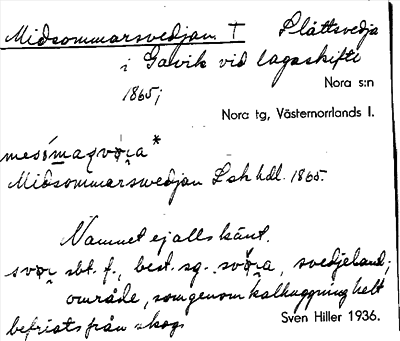 Midsommarsvedjan † Slåttsvedja
i Gavik vid lagaskifte
1865;
Nora s:n
Nora tg, Västernorrlands l.
Midsommarswedjan Lsk hdl. 1865.
Namnet ej alls känt.
svor sbt. f., best. sg. svora, svedjeland;
område, som genom kalhuggning helt
befriats från skog
Sven Hiller 1936.